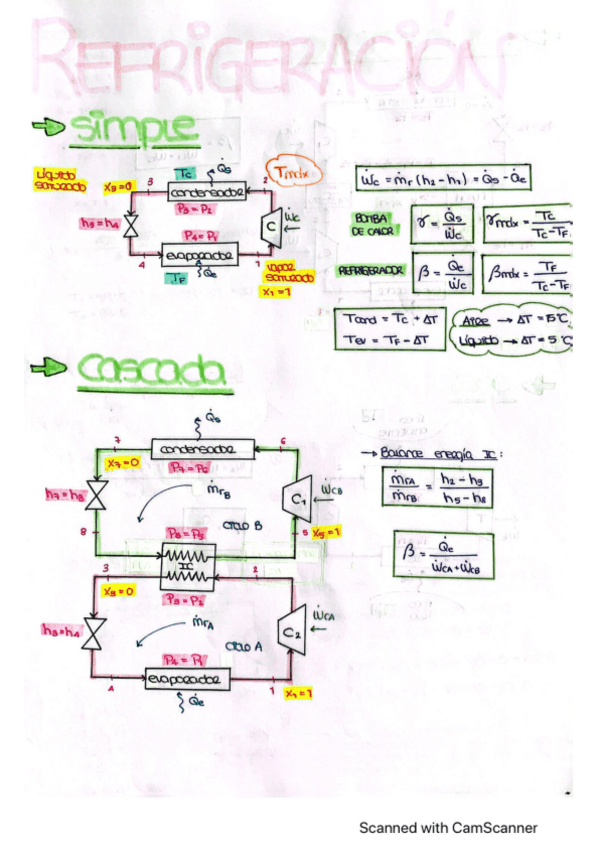 REFRIGERACIÓN
simple
Líquido saturado
x3=0
3
Tc
Q̇s
2
Tmáx
condensador
P3 = P2
h3=h4
C
Ẇc
P4 = P1
evaporador
4
1
TF
Q̇e
vapor saturado
x1=1
Ẇc = ṁr (h2 - h1) = Q̇s - Q̇e
BOMBA DE CALOR
γ = Q̇s / Ẇc
γmáx = Tc / (Tc - TF)
REFRIGERADOR
β = Q̇e / Ẇc
βmáx = TF / (Tc - TF)
Tcond = Tc + ΔT
Tev = TF - ΔT
Aire → ΔT = 15°C
Líquido → ΔT = 5°C
cascada
Q̇s
7
condensador
6
x7=0
P7 = P6
h7=h8
ṁrB
C1
ẆCB
8
ciclo B
5
x5=1
P8 = P5
IC
3
2
x3=0
P3 = P2
h3=h4
ṁrA
C2
ẆCA
ciclo A
P4 = P1
evaporador
4
1
x1=1
Q̇e
→ Balance energía IC:
ṁrA / ṁrB = (h2 - h3) / (h5 - h8)
β = Q̇e / (ẆCA + ẆCB)
Scanned with CamScanner